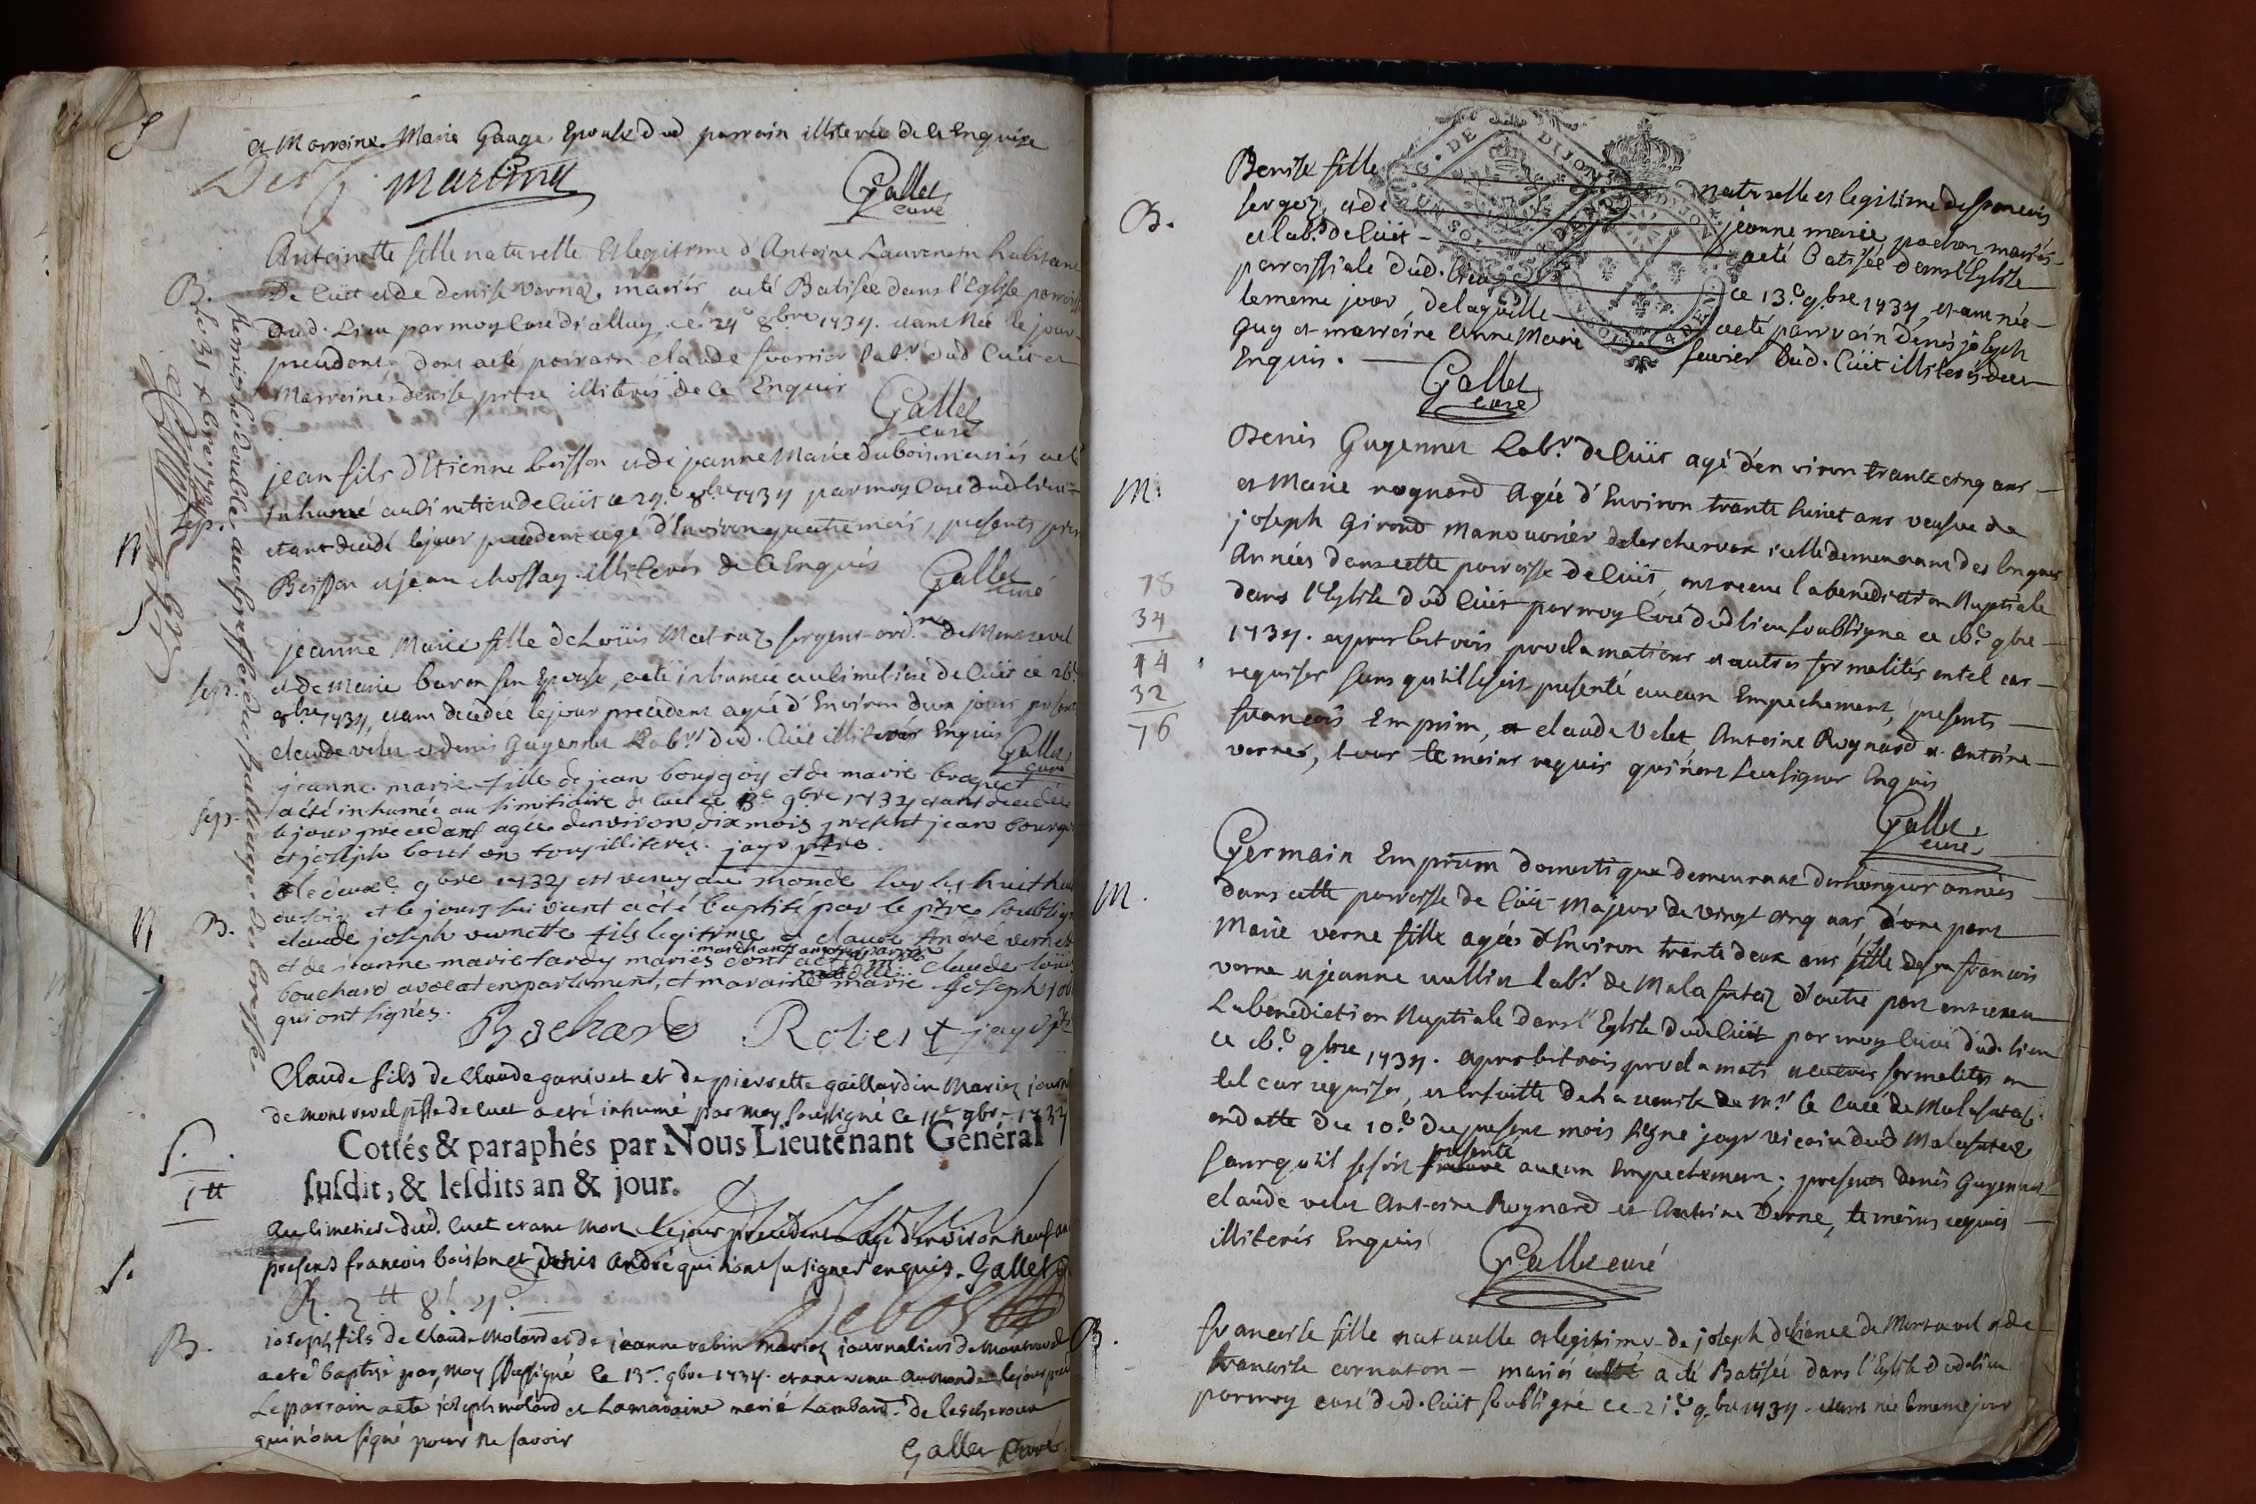 et Marraine Marie Gauge Epouse dud parrain illiterée de ce Enquise
martinet
Gallet
curé
B.
Antoinette fille naturelle et legitime d'Antoine Laurencin habitant
De Cüet et de denise Vernaz mariés a eté Batisée dans l'Eglise paroissi
Dud. Lieu par moy Curé d'icelluy ce 24e 8bre 1734. etant Née le jour
precedent dont a eté parrain claude fvorrier labr. dud Cüet et
Marraine denise illiterés de ce Enquis
Gallet
curé
sep.
jean fils d'Etienne boisson et de jeanne Marie dubois mariés a eté
inhumé au cimetiere de Cüet ce 24e 8bre 1734 par moy Curé dud lieu
etant decedé le jour precedent agé d'Environ quatre mois, presents
Boisson et jean chossay illiterés de ce Enquis
Gallet
curé
sep.
jeanne Marie fille de Loüis Mestraz sergent ord.re de Montrevel
et de Marie buron son Epouse, a eté inhumée au cimetiere de Cüet ce 26e
8bre 1734, etant decedée le jour precedent agée d'Environ deux jours presents
claude velet et denis Guyennet Labrs dud. Cüet illiterés Enquis
Gallet
curé
sep.
jeanne marie fille de jean bourgois et de marie braquet
a eté inhumée au simitiaire de cuet ce 3e 9bre 1734 etant decedée
le jour precedant agée denviron dix mois present jean bourgois
et joseph bouton tous illiteres. jayr ptre.
N
B.
le deuxe. 9bre 1734 est venu au monde sur les huit heu
du soir et le jour suivant a eté baptisé par le ptre soubsigné
claude joseph vernette fils legitime a claude André vernette
et de jeanne marie tardy mariés
bouchard avocat en parlement, et maraine marie joseph
qui ont signés.
Bochard Robert jayr ptre
Claude fils de Claude ganivet et de pierrette gaillardin Mariez journ
de Montrevel psse de cuet a eté inhumé par moy soussigné ce 11e 9bre 1734
Cottés & paraphés par Nous Lieutenant Général
susdit, & lesdits an & jour.
S.
1 tt
au cimetiere dud. Cuet etant mort le jour precedent agé d'environ neuf ans
presens francois boisson et denis andré qui n'ont su signer enquis. Gallet
R. 2 tt 8 s. 4 d.
B.
joseph fils de Claude Molard et de jeanne robin mariez journaliers de Montrevel
a eté baptisé par moy soussigné le 13e 9bre 1734. etant venu au monde le jour
Le parrain a eté joseph molard et La maraine marie Lambard. de lescheroux
qui n'ont signé pour ne savoir
Gallet Curé.
Remise le double au Greffe du bailliage de bresse
le 31 xbre 1734
B.
Denise fille naturelle et legitime de francois
sergez, et de jeanne marie pochon mariés
et labrs de Cüet a eté Batisée dans l'Eglise
parroissiale dud. lieu ce 13e 9bre 1734, etant née
le meme jour de laquelle a eté parrain denis joseph
Guy et marraine Anne Marie fevrier dud. Cüet illiterés de ce
Enquis.
Gallet
curé
M.
Denis Guyennet Labr. de Cüet agé d'environ trante cinq ans
et Marie roynard Agée d'Environ trante huict ans veufve de
joseph Girond Manouvrier de lescheroux icelle demeurant des longues
Années dans cette parroisse de Cüet, ont receu la benediction Nuptiale
dans l'Eglise dud Cüet par moy Curé dud lieu soubsigné ce 16e 9bre
1734. apres les trois proclamations et autres formalités en tel cas
requises sans qu'il se soit presenté aucun Empechement, presents
francois Emprim, et claude Velet, Antoine Roynard et Antoine
verne, tous temoins requis qui n'ont sceu signer Enquis
Gallet
curé
78
34
44
32
76
M.
Germain Emprim domestique demeurant des longues années
dans cette parroisse de Cüet Majeur de vingt cinq ans, d'une part
Marie verne fille agée d'Environ trente deux ans fille de feu francois
verne et jeanne vullin labrs de Malafretaz d'autre part ont receu
La benediction Nuptiale dans l'Eglise dud Cüet par moy Curé dud. lieu
ce 16e 9bre 1734. apres les trois proclamats et autres formalités en
tel cas requises, et ensuitte de la remise de Mr le Curé de Malafretaz
en datte du 10e du present mois signé jayr vicaire dud Malafretaz
sans qu'il se soit presenté aucun Empechement; presents denis Guyennet
claude velet Antoine Roynard et Antoine Verne, temoins requis
illiterés Enquis
Gallet curé
B.
francoise fille naturelle et legitime de joseph deliance de Montrevel et de
francoise cornaton - mariés a eté Batisée dans l'Eglise dud lieu
par moy curé dud. Cüet soubsigné ce 21e 9bre 1734. etant née le meme jour